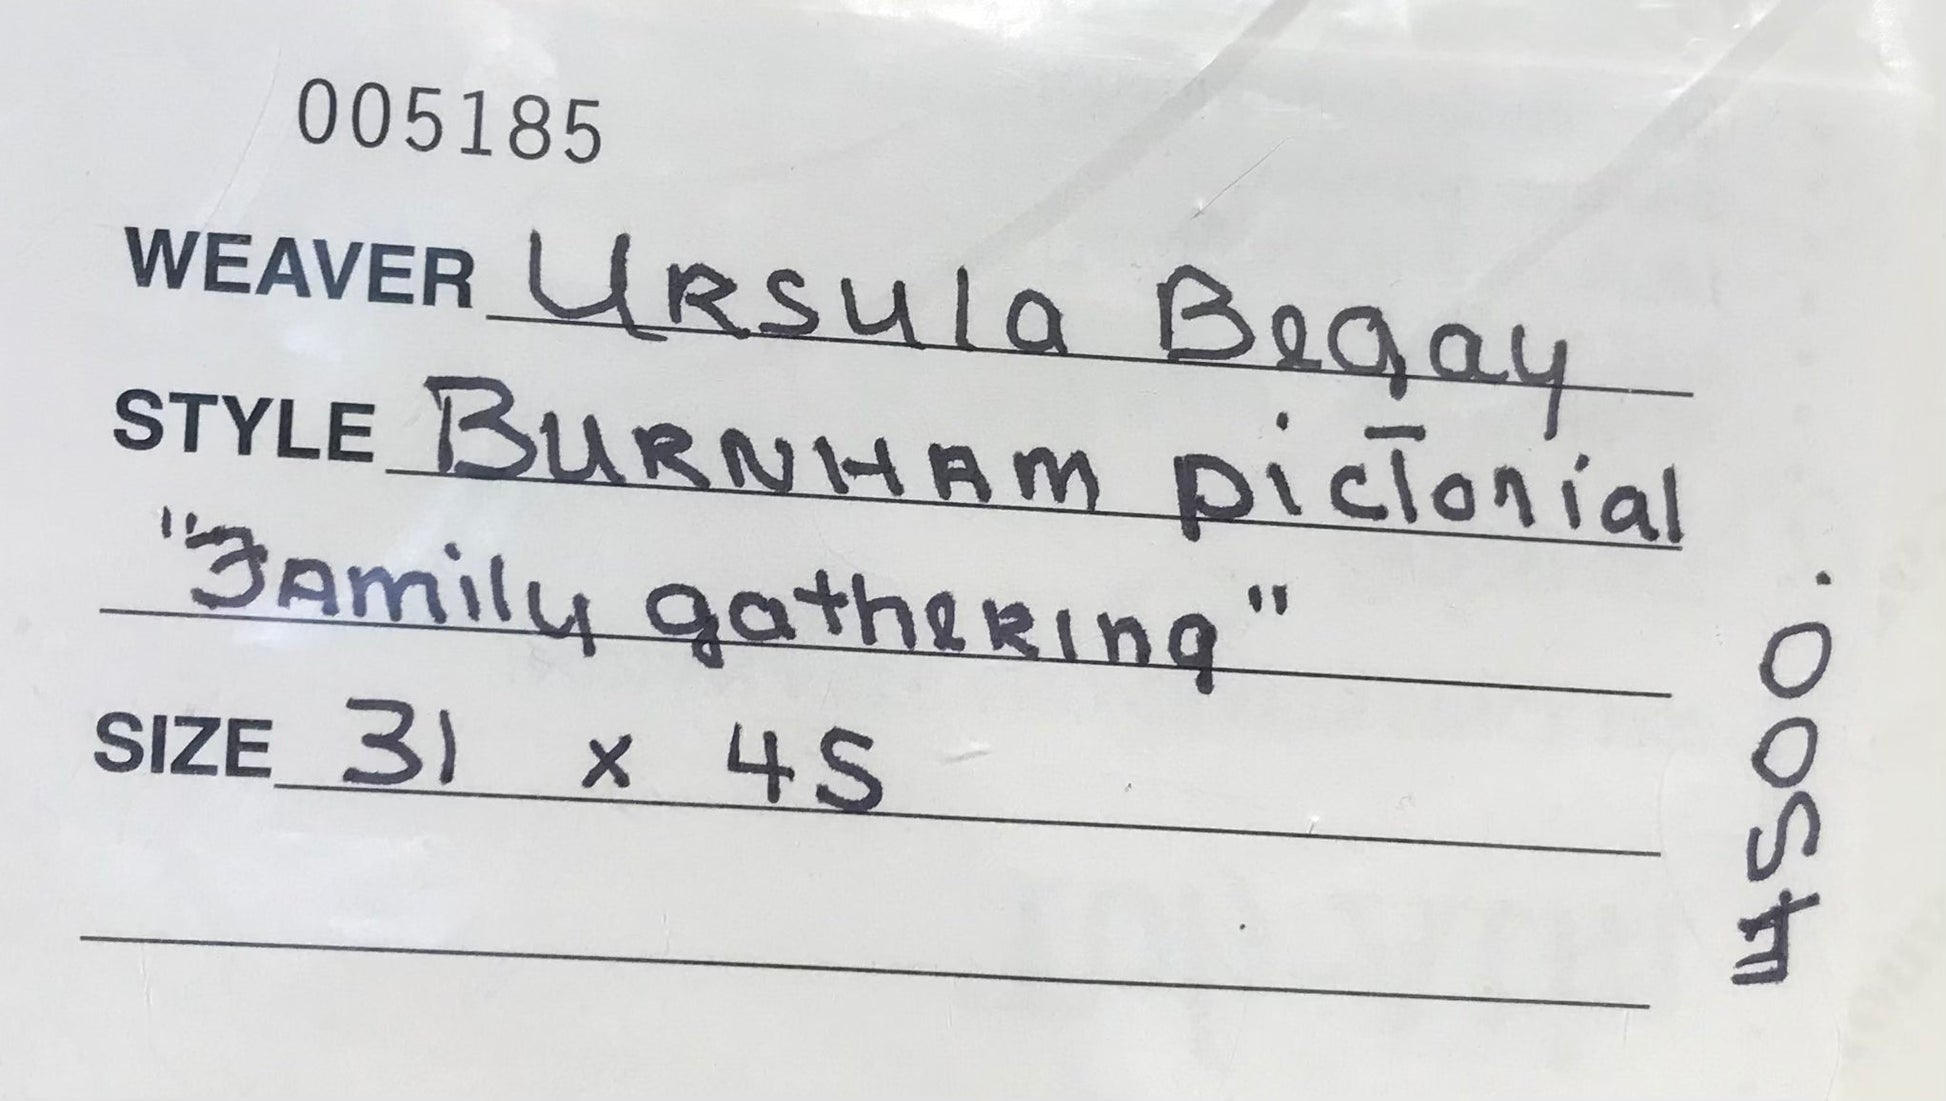 005185
WEAVER Ursula Begay
STYLE BURNHAM pictorial
"Family gathering"
SIZE 31 x 45
4500.